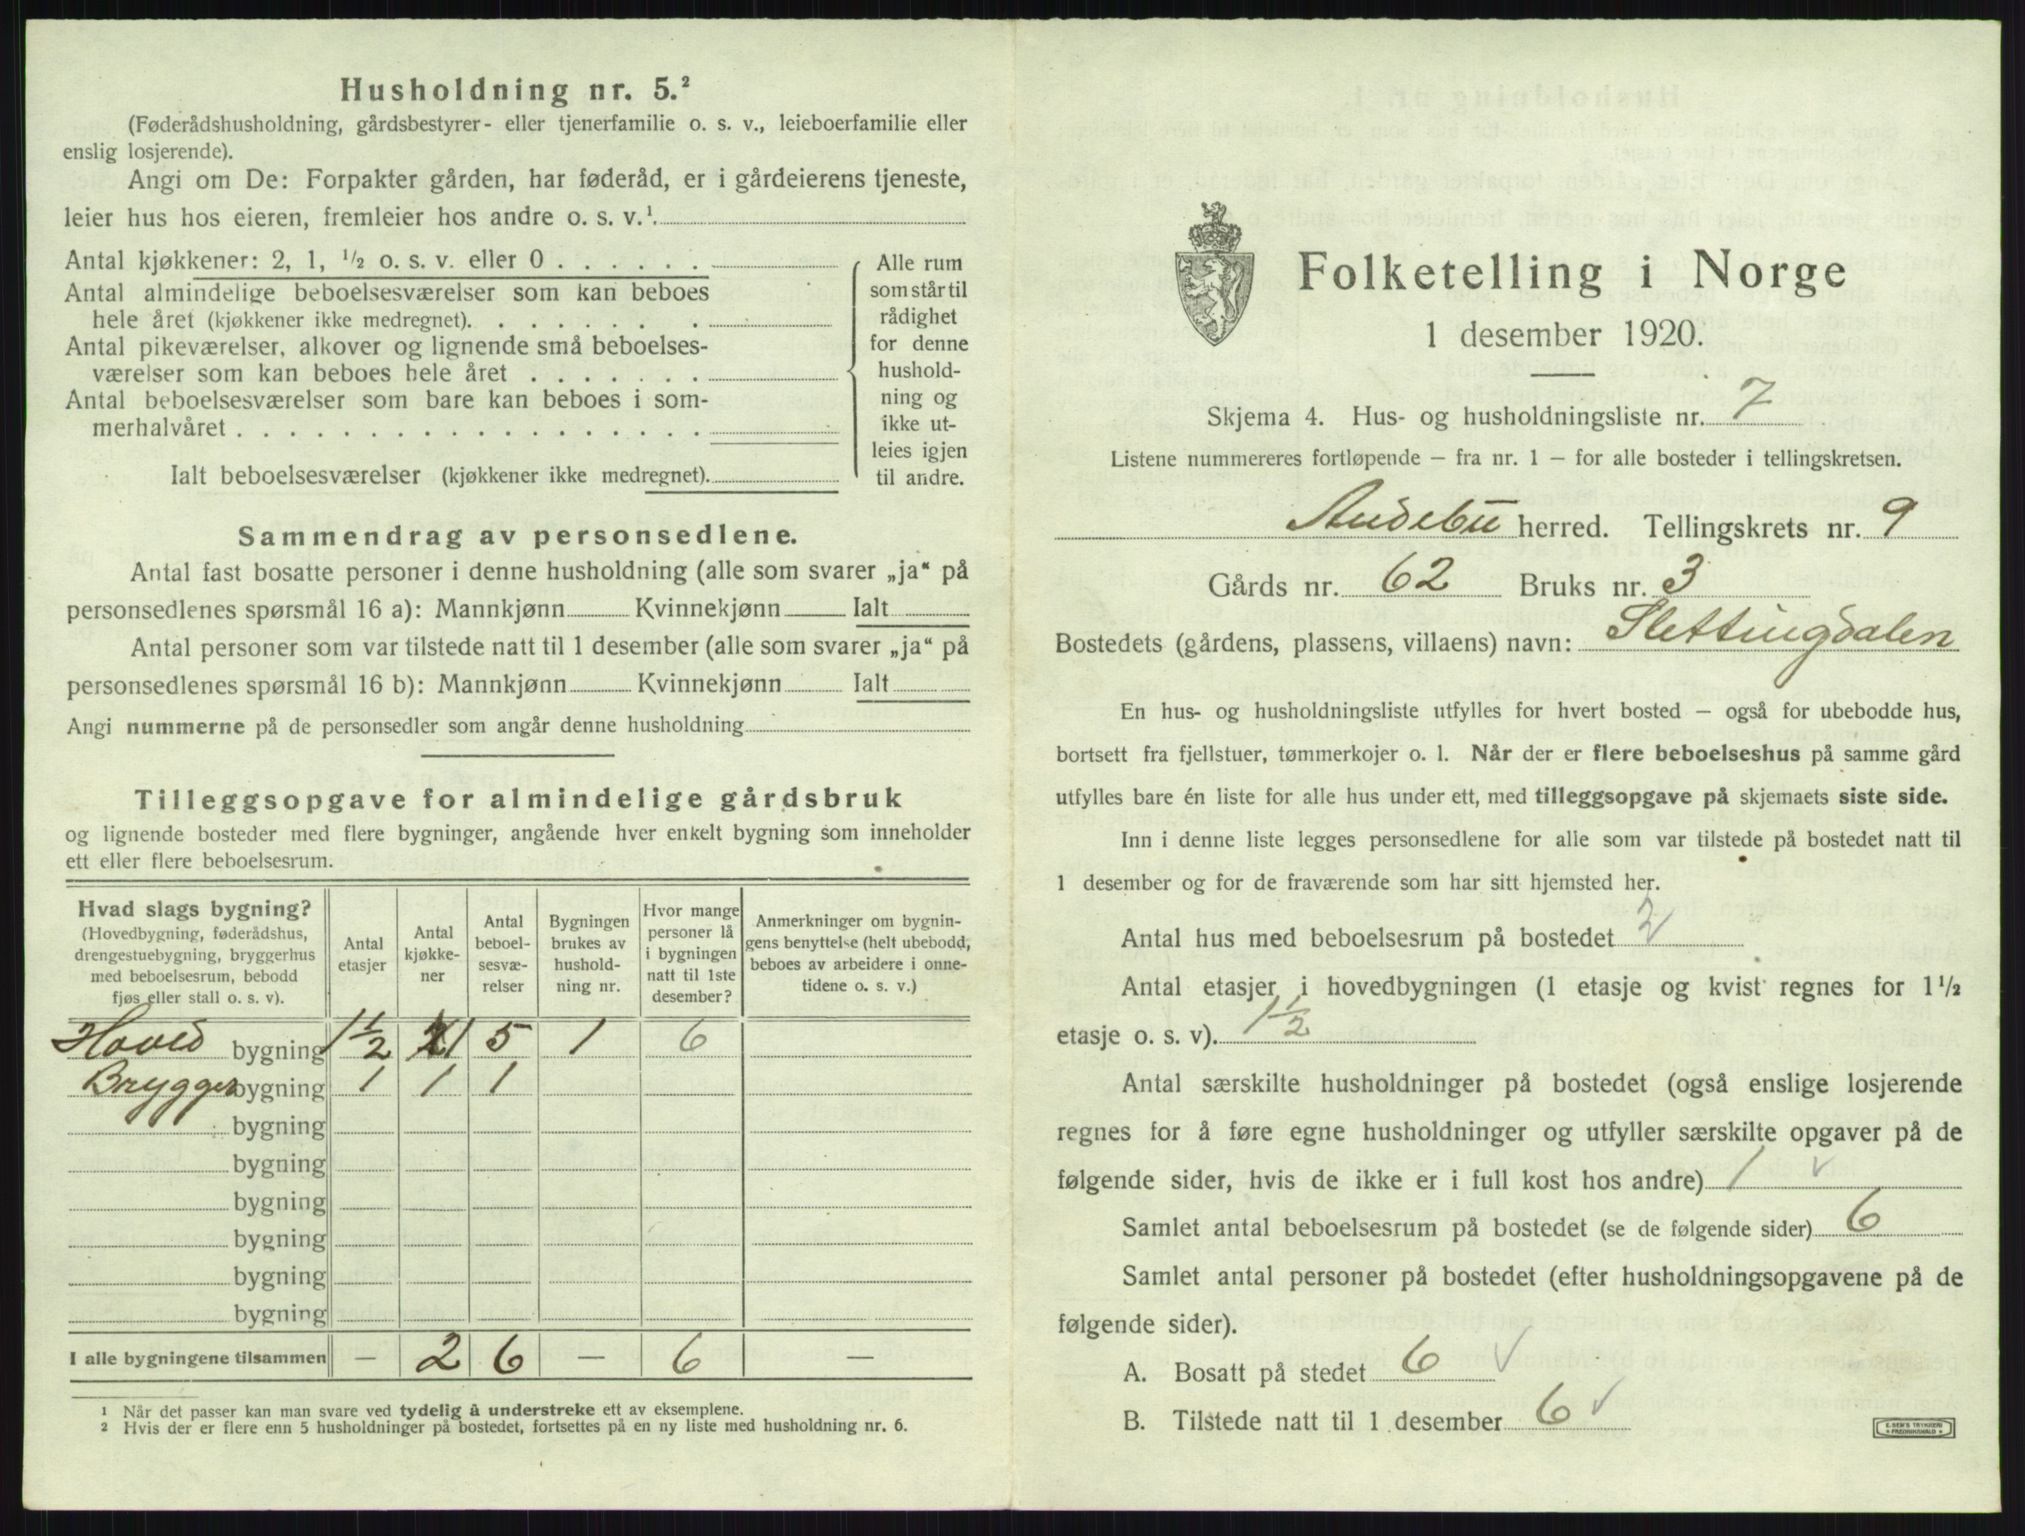 Husholdning nr. 5.²
(Føderådshusholdning, gårdsbestyrer- eller tjenerfamilie o. s. v., leieboerfamilie eller
enslig losjerende).
Angi om De: Forpakter gården, har føderåd, er i gårdeierens tjeneste,
leier hus hos eieren, fremleier hos andre o. s. v.¹
Antal kjøkkener: 2, 1, ½ o. s. v. eller 0
Antal almindelige beboelsesværelser som kan beboes
hele året (kjøkkener ikke medregnet).
Antal pikeværelser, alkover og lignende små beboelses-
værelser som kan beboes hele året
Antal beboelsesværelser som bare kan beboes i som-
merhalvåret
Ialt beboelsesværelser (kjøkkener ikke medregnet).
Alle rum
som står til
rådighet
for denne
hushold-
ning og
ikke ut-
leies igjen
til andre.
Sammendrag av personsedlene.
Antal fast bosatte personer i denne husholdning (alle som svarer „ja“ på
personsedlenes spørsmål 16 a): Mannkjønn Kvinnekjønn Ialt
Antal personer som var tilstede natt til 1 desember (alle som svarer „ja“ på
personsedlenes spørsmål 16 b): Mannkjønn Kvinnekjønn Ialt
Angi nummerne på de personsedler som angår denne husholdning
Tilleggsopgave for almindelige gårdsbruk
og lignende bosteder med flere bygninger, angående hver enkelt bygning som inneholder
ett eller flere beboelsesrum.
Hvad slags bygning?
(Hovedbygning, føderådshus,
drengestuebygning, bryggerhus
med beboelsesrum, bebodd
fjøs eller stall o. s. v).
Antal
etasjer
Antal
kjøkke-
ner
Antal
beboel-
sesvæ-
relser
Bygningen
brukes av
hushold-
ning nr.
Hvor mange
personer lå
i bygningen
natt til 1ste
desember?
Anmerkninger om bygnin-
gens benyttelse (helt ubebodd,
beboes av arbeidere i onne-
tidene o. s. v.)
Hoved bygning 1½ 1 5 1 6
Brygger bygning 1 1 1
bygning
bygning
bygning
bygning
bygning
bygning
I alle bygningene tilsammen — 2 6 — 6 —
¹ Når det passer kan man svare ved tydelig å understreke ett av eksemplene.
² Hvis der er flere enn 5 husholdninger på bostedet, fortsettes på en ny liste med husholdning nr. 6.
Folketelling i Norge
1 desember 1920.
Skjema 4. Hus- og husholdningsliste nr. 7
Listene nummereres fortløpende – fra nr. 1 – for alle bosteder i tellingskretsen.
Andebu herred. Tellingskrets nr. 9
Gårds nr. 62 Bruks nr. 3
Bostedets (gårdens, plassens, villaens) navn: Slettingdalen
En hus- og husholdningsliste utfylles for hvert bosted – også for ubebodde hus,
bortsett fra fjellstuer, tømmerkojer o. l. Når der er flere beboelseshus på samme gård
utfylles bare én liste for alle hus under ett, med tilleggsopgave på skjemaets siste side.
Inn i denne liste legges personsedlene for alle som var tilstede på bostedet natt til
1 desember og for de fraværende som har sitt hjemsted her.
Antal hus med beboelsesrum på bostedet 2
Antal etasjer i hovedbygningen (1 etasje og kvist regnes for 1½
etasje o. s. v). 1½
Antal særskilte husholdninger på bostedet (også enslige losjerende
regnes for å føre egne husholdninger og utfyller særskilte opgaver på de
følgende sider, hvis de ikke er i full kost hos andre) 1
Samlet antal beboelsesrum på bostedet (se de følgende sider) 6
Samlet antal personer på bostedet (efter husholdningsopgavene på de
følgende sider).
A. Bosatt på stedet 6
B. Tilstede natt til 1 desember 6